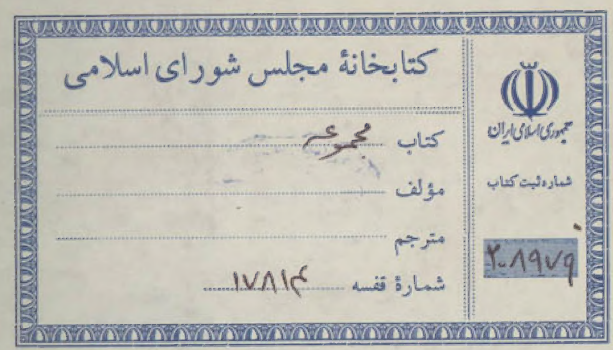 کتابخانهٔ مجلس شورای اسلامی
کتاب مجموعه
مؤلف
مترجم
شمارهٔ قفسه ۱۷۸۱۴
جمهوری اسلامی ایران
شماره ثبت کتاب
۲۰۸۹۷۹